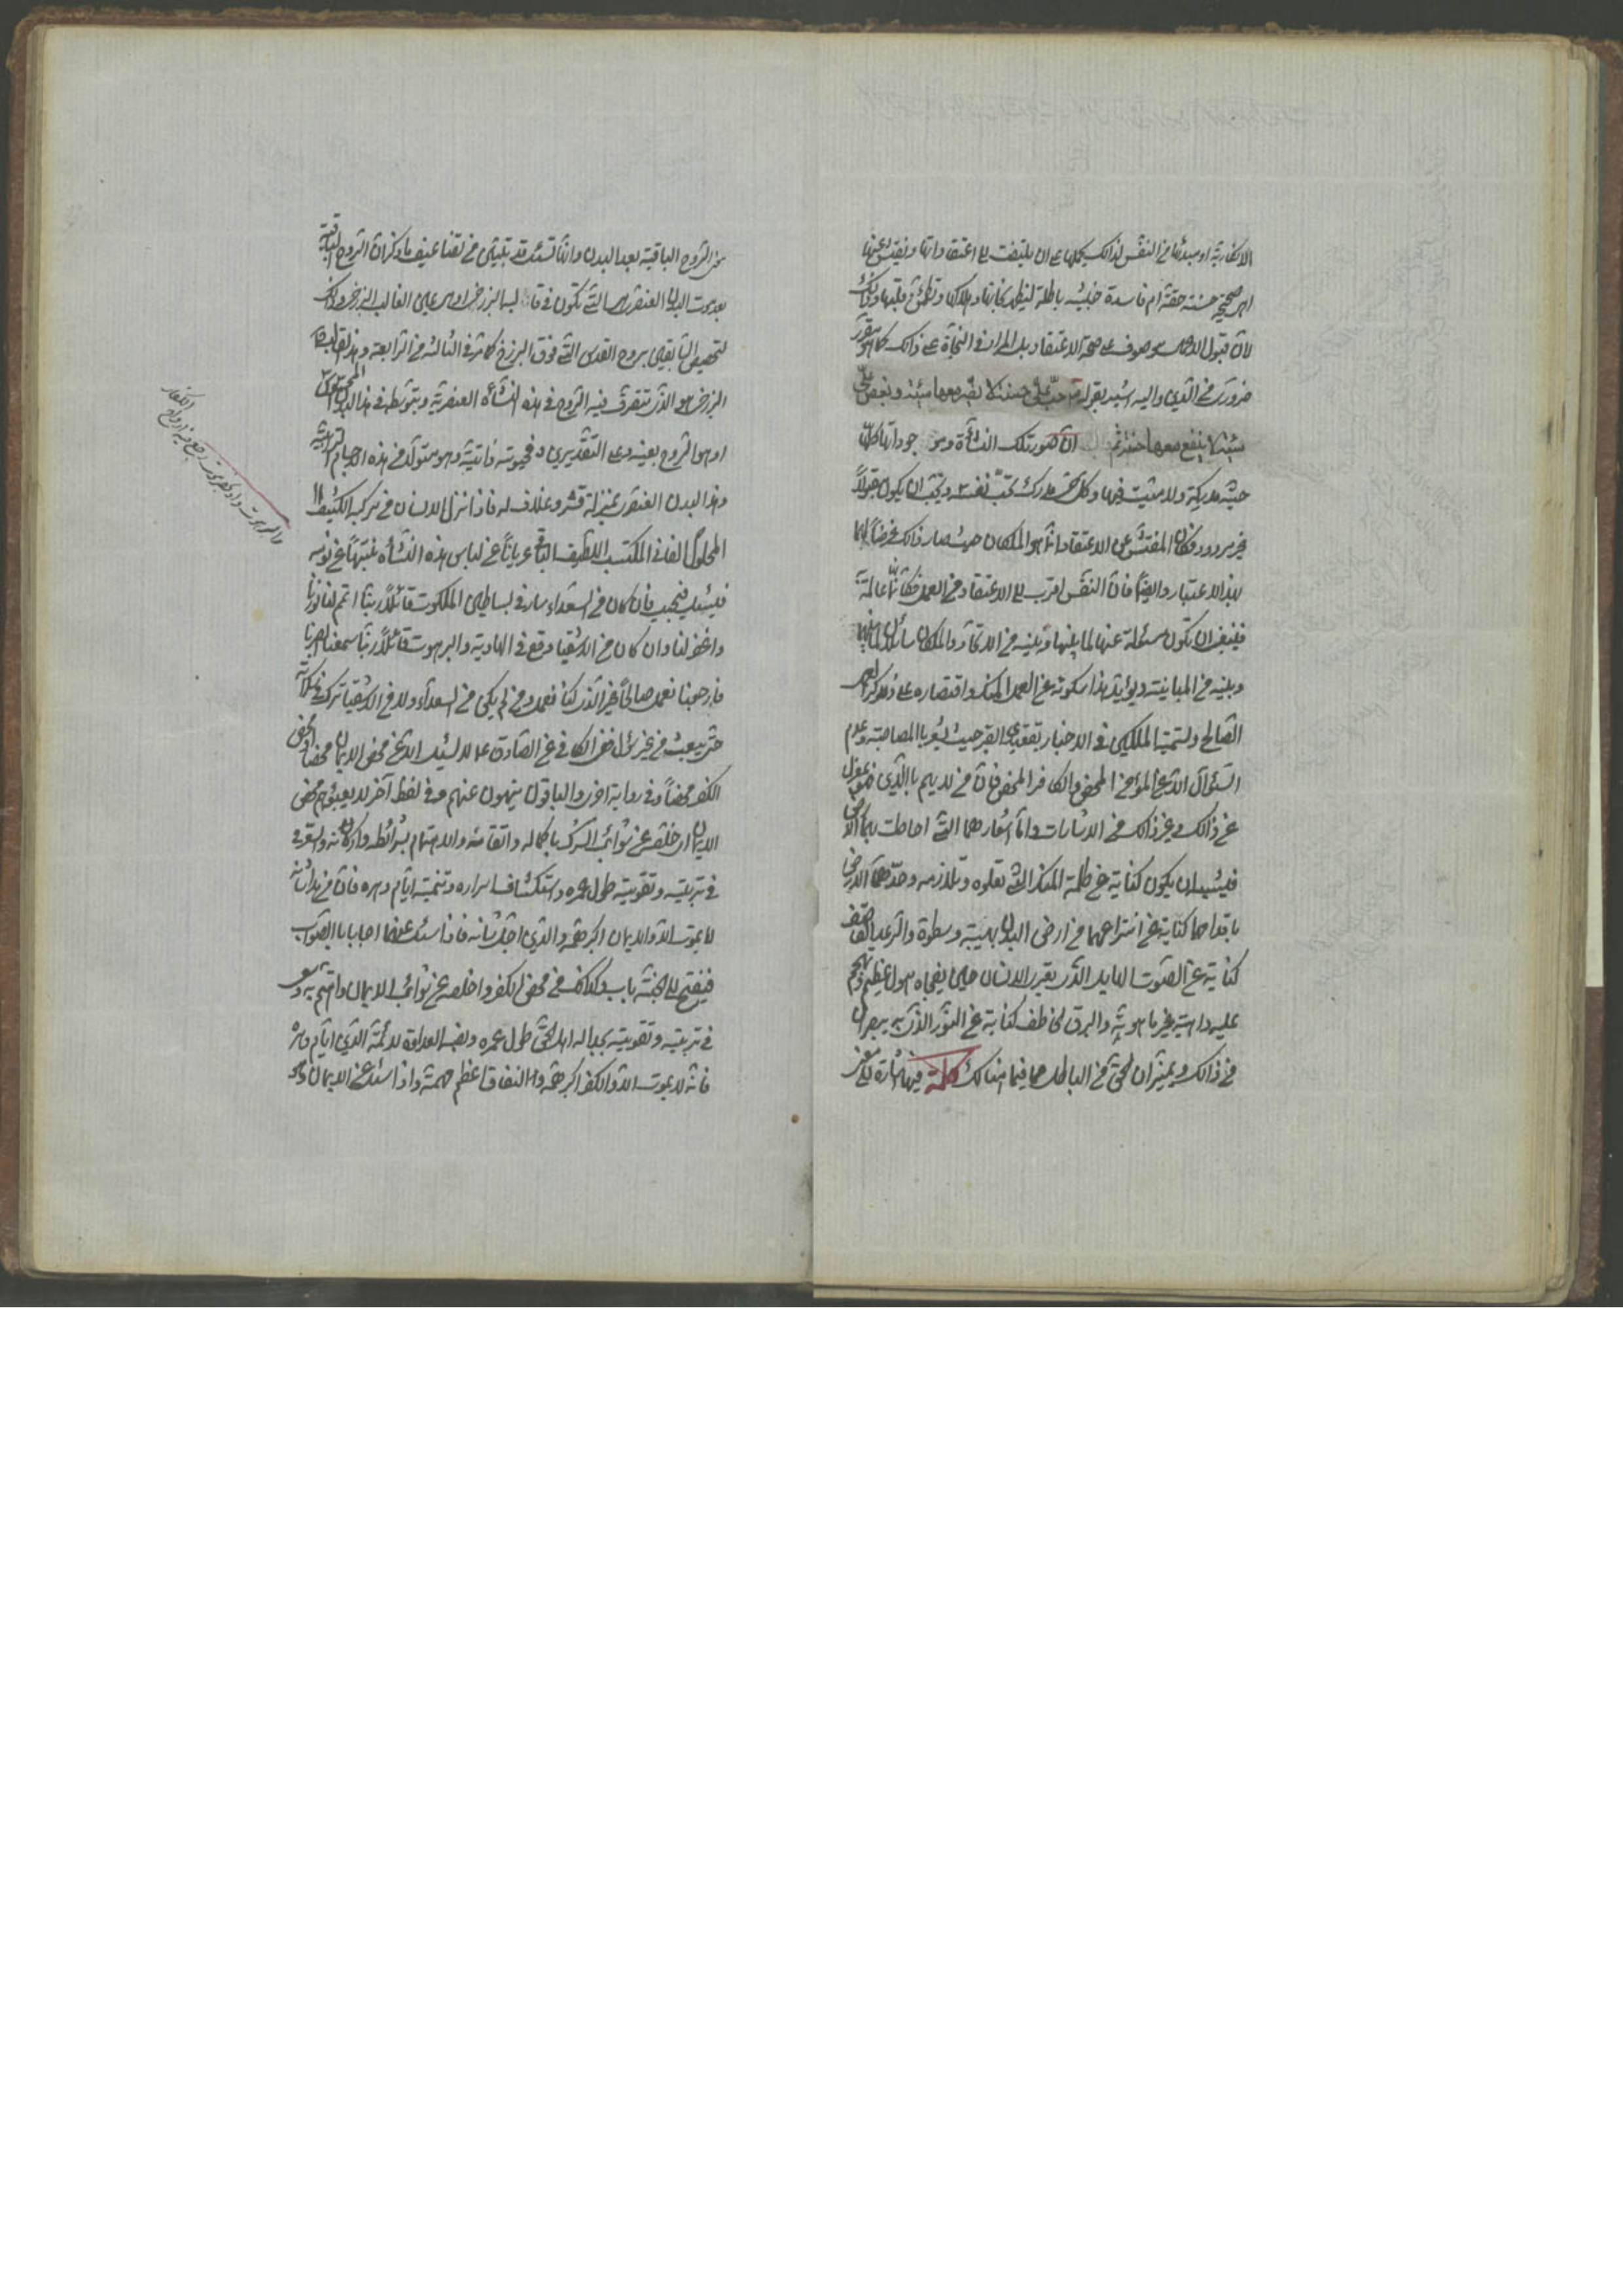 الانكارية او مبدئها من النفس لذالك يحملها على ان يلتفت الى اعتقاداتها ونفتش عنها
اهى صحيحة حسنة حقة ام فاسدة خبيثه باطلة ليظهر نجاتها وهلاكها وتطمئن قلبها وذالك
لان قبول الاعمال موقوف على صحة الاعتقاد بل المدار فى النجاة على ذالك كما هو مقرر
ضرورى من الدين واليه اشير بقوله حب على حسنة لا تضر معها سيئة وبغض على
سيئة لا ينفع معها حسنة ثم ان صور تلك النشأة وموجوداتها كلها
حية مدركة ولا ميت فيها وكل مدرك يحب نفسه ويحب ان يكون مقبولاً
غير مردود فكان المفتش عن الاعتقادات هو الملكان حيث صار ذالك غرضاً لهما
بهذا الاعتبار وايضاً فان النفس اقرب الى الاعتقاد من العمل فكانها عالمة
فينبغى ان تكون مسئلة عنها لما بينها وبينه من الاتحاد والملكان سائلان لما بينها
وبينه من المباينة ويؤيد هذا سكوته عن العمل واقتصاره على ذكر العمل
الصالح وتسمية الملكين فى الاخبار بقعيدى القبر حيث يشعر بالمصاحبة وعدم
السئوال الا عن المؤمن المحض والكافر المحض فان من لا يهم بالدين فمعزول
عن ذالك وغير ذالك من الاشارات واما اشعارهما التى احاطت بهما الارض
فيشبه ان يكون كناية عن ظلمة المنكر التى تعلوه وتلازمه وخدهما الارض
باقدامهما كناية عن انتزاعهما من ارض البدن بهيبة وسطوة والرعد القاصف
كناية عن الصوت الهايل الذى يقرر الانسان حين يفجاه هول عظيم ويهجم
عليه داهية غير ما هوية والبرق الخاطف كناية عن النور الذى به يبصران
من ذالك ويميزان الحق من الباطل هما فيما هنالك كلمة فيها اشارة الى معنى
من الروح الباقية بعد البدن وانها تسئل قد تبين من تضاعيف ما ذكر ان الروح الباقية
بعد موت البدن العنصرى هى التى تكون فى قالبها البرزخى او هى على القالب البرزخى وذالك
لتخصيص السابقين بروح القدس التى فوق البرزخ كما مر فى الثالثة من الرابعة وهذا القالب
البرزخى هو الذى تتصرف فيه الروح فى هذه النشأة العنصرية وبتوسطه فى هذا البدن المحسوس
او هو الروح بعينه وعلى التقديرين فحيوته ذاتية وهو متولد من هذه الاجسام الترابية
وهذا البدن العنصرى بمنزلة قشر وغلاف له فاذا نزل الانسان من مركبه الكثيف
المحلول الفانى المكتسب اللطيف الباقى عرياناً عن لباس هذه النشأة منتبهاً عن نومه
فيسئل فيجيب فان كان من السعداء سار فى بساطين الملكوت قائلاً ربنا اتمم لنا نورنا
واغفر لنا وان كان من الاشقيا وقع فى الهاوية والبرهوت قائلاً ربنا سمعنا وابصرنا
فارجعنا نعمل صالحاً غير الذى كنا نعمل ومن لم يكن من السعداء ولا من الاشقيا ترك فى مكانه
حتى يبعث من غير سؤال ففى الكافى عن الصادق ع لا يسئل الا من محض الايمان محضاً ومحض
الكفر محضاً وفى رواية اخرى والباقون يلهون عنهم وفى لفظ آخر لا يعبؤهم محض
الايمان خلقه عن شوائب الشرك باكماله واتقانه والاهتمام بشرائطه واركانه والسعى
فى تربيته وتقويته طول عمره واستكشاف اسراره وتنميته ايام دهره فان من هذا شانه
لا يموت الا والايمان اكبر همه والدين اجل شانه فاذا سئل عنهما اجاب بالصواب
فيفتح الى الجنة باب وكذالك من محض الكفر واخلصه عن شوائب الايمان واهتم به وسعى
فى تربيته وتقويته بجداله اهل الحق طول عمره ونصب العداوة لائمة الدين ايام دهره
فانه لا يموت الا والكفر اكبر همه والنفاق اعظم مهمه واذا سئل عن الايمان